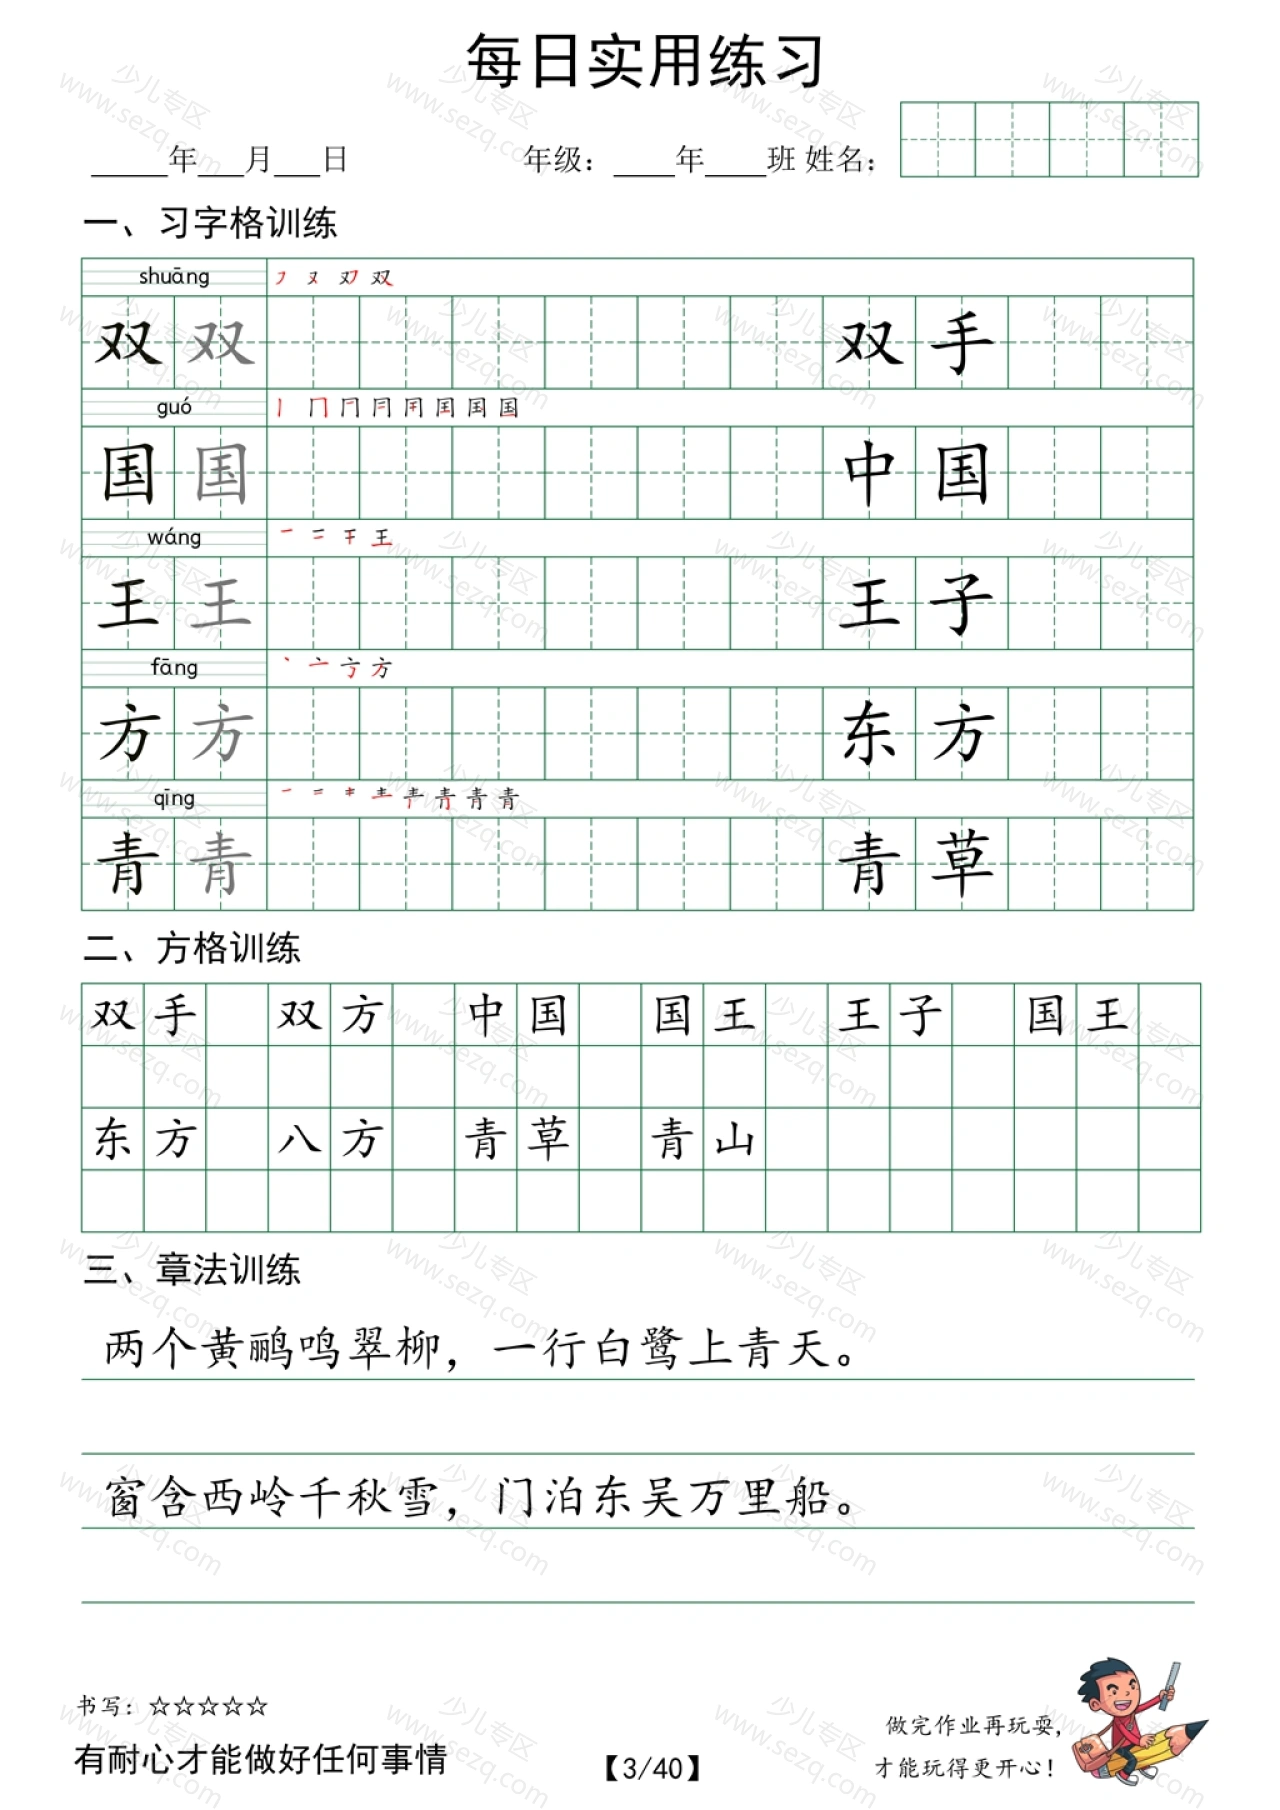 每日实用练习
_____年___月___日 年级：____年____班 姓名：
一、习字格训练
shuāng
双 双 双 手
guó
国 国 中 国
wáng
王 王 王 子
fāng
方 方 东 方
qīng
青 青 青 草
二、方格训练
双 手 双 方 中 国 国 王 王 子 国 王
东 方 八 方 青 草 青 山
三、章法训练
两个黄鹂鸣翠柳，一行白鹭上青天。
窗含西岭千秋雪，门泊东吴万里船。
书写：☆☆☆☆☆
做完作业再玩耍，
有耐心才能做好任何事情 【3/40】 才能玩得更开心！
少儿专区
www.sezq.com